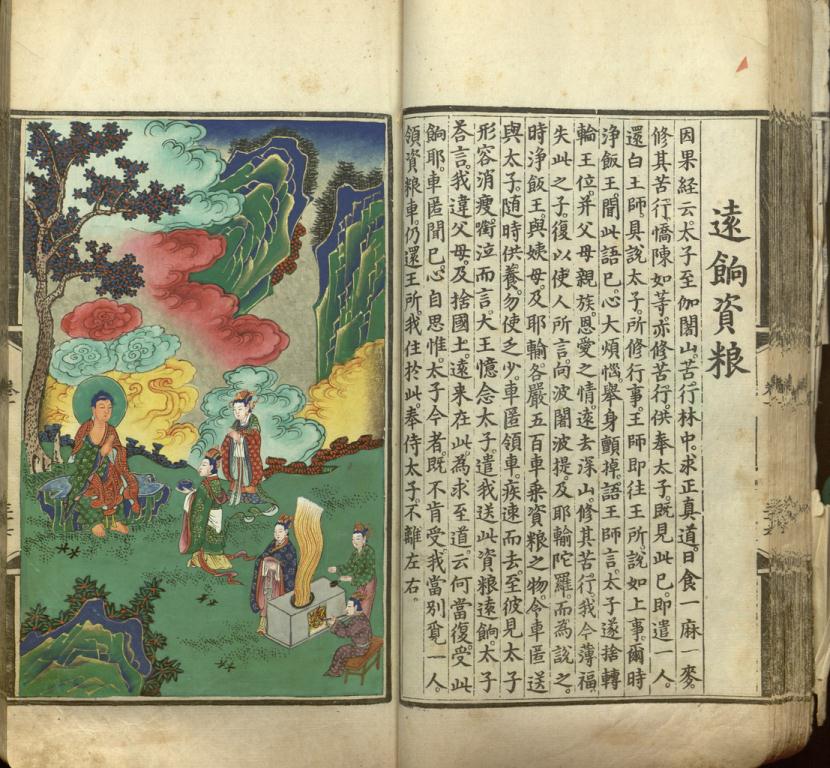 遠餉資粮
因果経云太子至伽闍山苦行林中。求正真道。日食一麻一麥。
修其苦行。憍陳如等。亦修苦行。供奉太子。既見此已。即遣一人。
還白王師。具說太子。所修行事。王師即往王所。說如上事。爾時
淨飯王聞此語已。心大煩惱。舉身顫掉。語王師言。太子遂捨轉
輪王位。并父母親族。恩愛之情。遠去深山。修其苦行。我今薄福。
失此之子。復以使人所言。向波闍波提。及耶輸陀羅。而為說之。
時淨飯王。與姨母。及耶輸。各嚴五百車乗。資粮之物。令車匿送
與太子。隨時供養。勿使乏少。車匿領車。疾速而去。至彼見太子
形容消瘦。啣泣而言。大王憶念太子。遣我送此資粮。遠餉太子
荅言。我違父母。及捨國土。遠来在此。為求至道。云何當復。受此
餉耶。車匿聞已。心自思惟。太子今者。既不肯受。我當别覓一人。
領資粮車。仍還王所。我住於此。奉侍太子。不離左右。